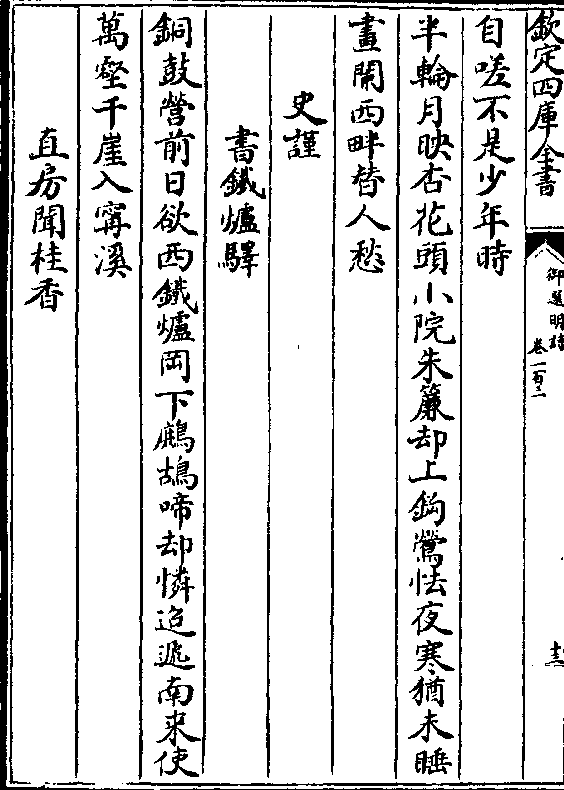 欽定四庫全書
御選明詩
卷一百二
十三
自嗟不是少年時
半輪月映杏花頭小院朱簾却上鈎鶯怯夜寒猶未睡
畫闌西畔替人愁
史謹
書鐵爐驛
銅鼓營前日欲西鐵爐岡下鷓鴣啼却憐迢遞南來使
萬壑千崖入甯溪
直房聞桂香